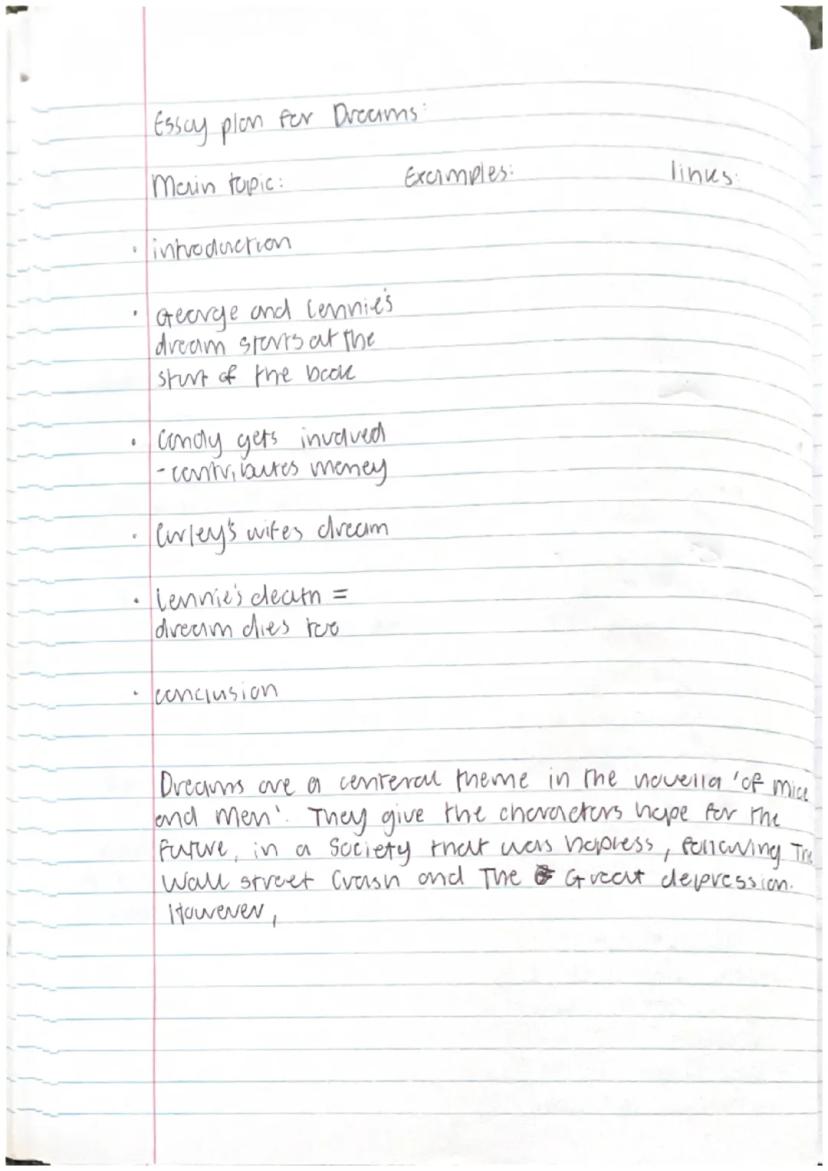 Essay plan for Dreams:
Main topic: Examples: links:
• introduction
• George and Lennie's
dream starts at the
start of the book
• Candy gets involved
- contributes money
• Curley's wifes dream
• Lennie's death =
dream dies too
• conclusion
Dreams are a centeral theme in the novella 'of mice
and Men'. They give the characters hope for the
future, in a society that was hopless, following The
Wall street Crash and The Great depression.
However,